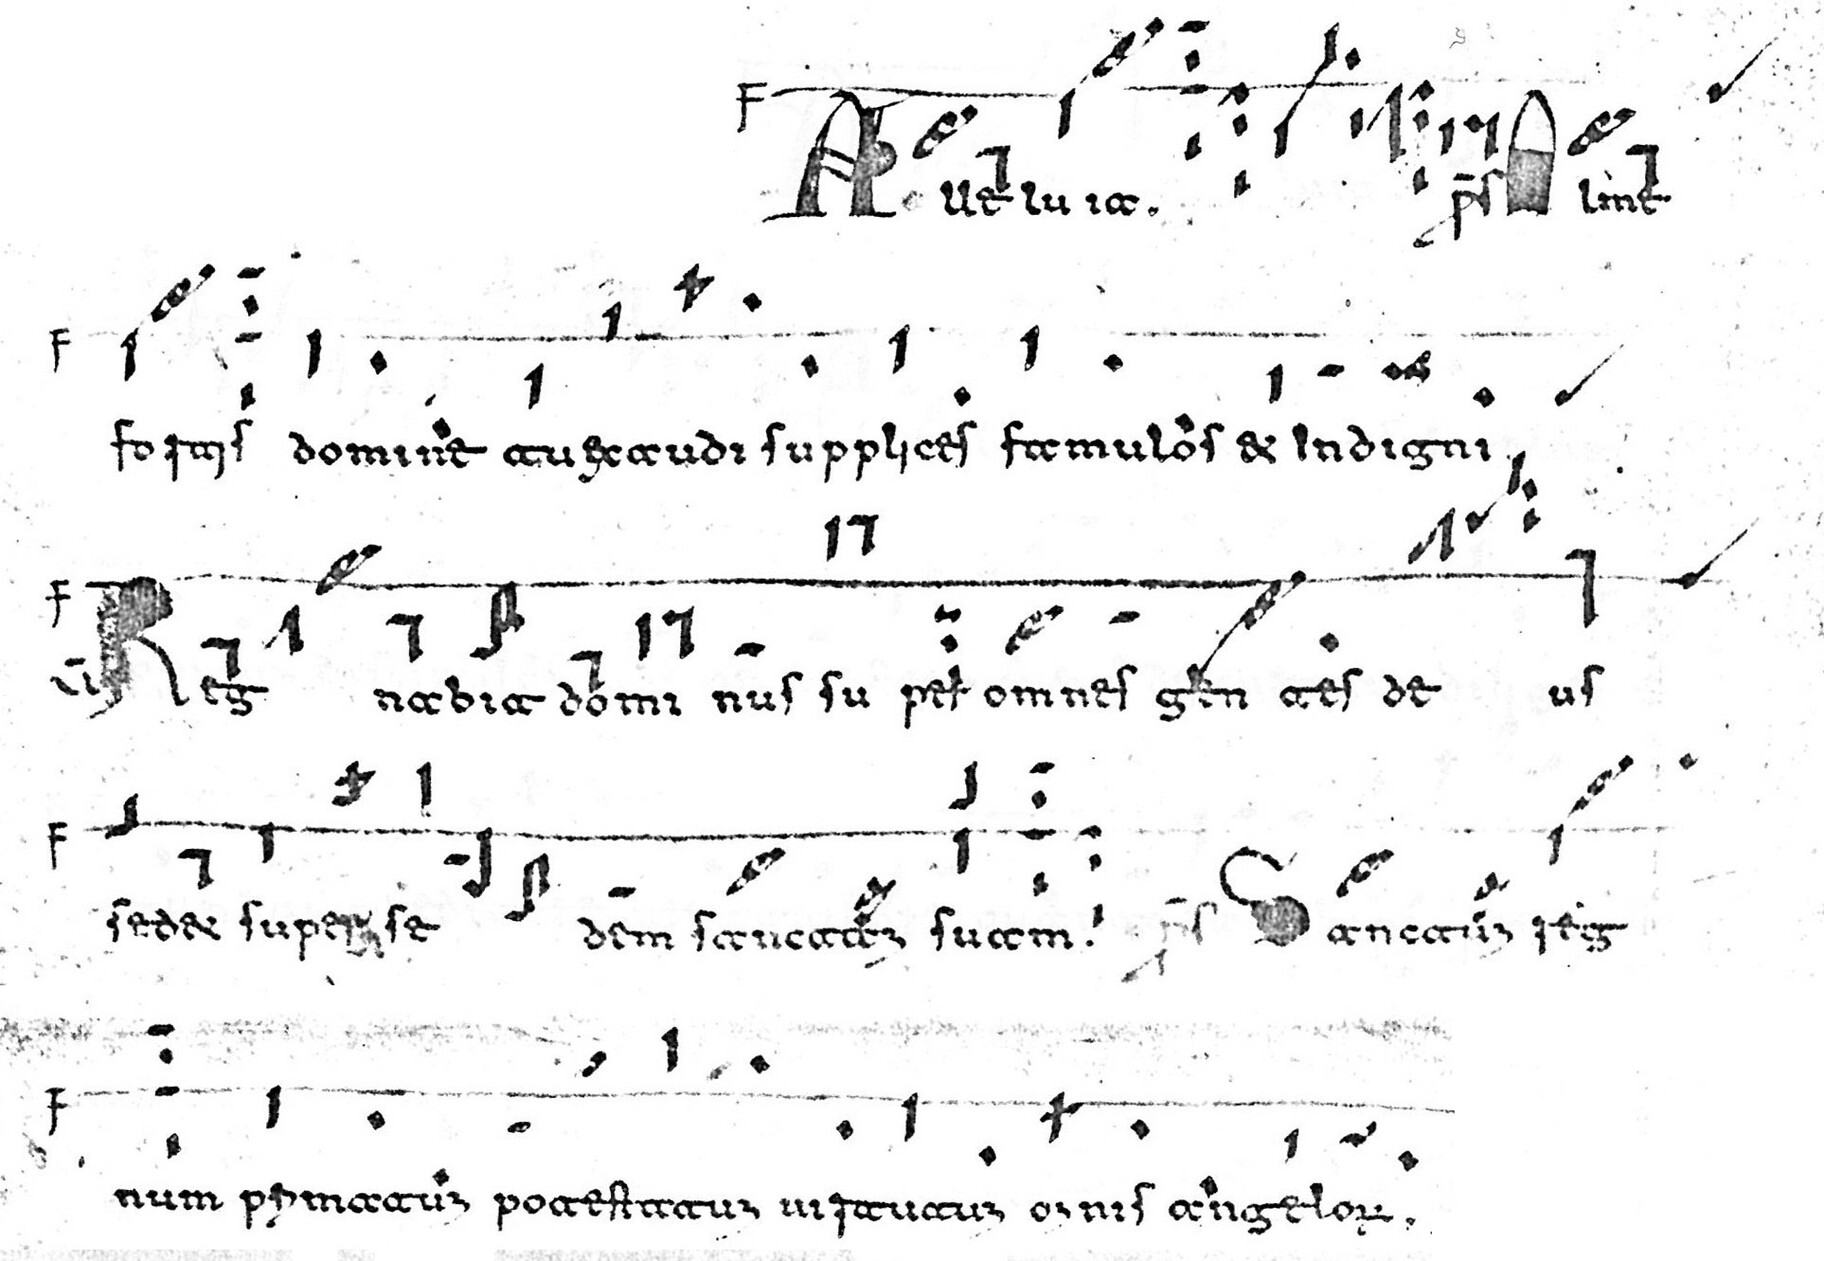 F Alle lu ia. ps Alme
F fortis domine tu exaudi supplices famulos & indigni
F Reg nabit domi nus su per omnes gen tes de us
F sed& super se dem sanctam suam. ps Sanctum reg
F num primatum potestatum uirtutum omnis angelorum.